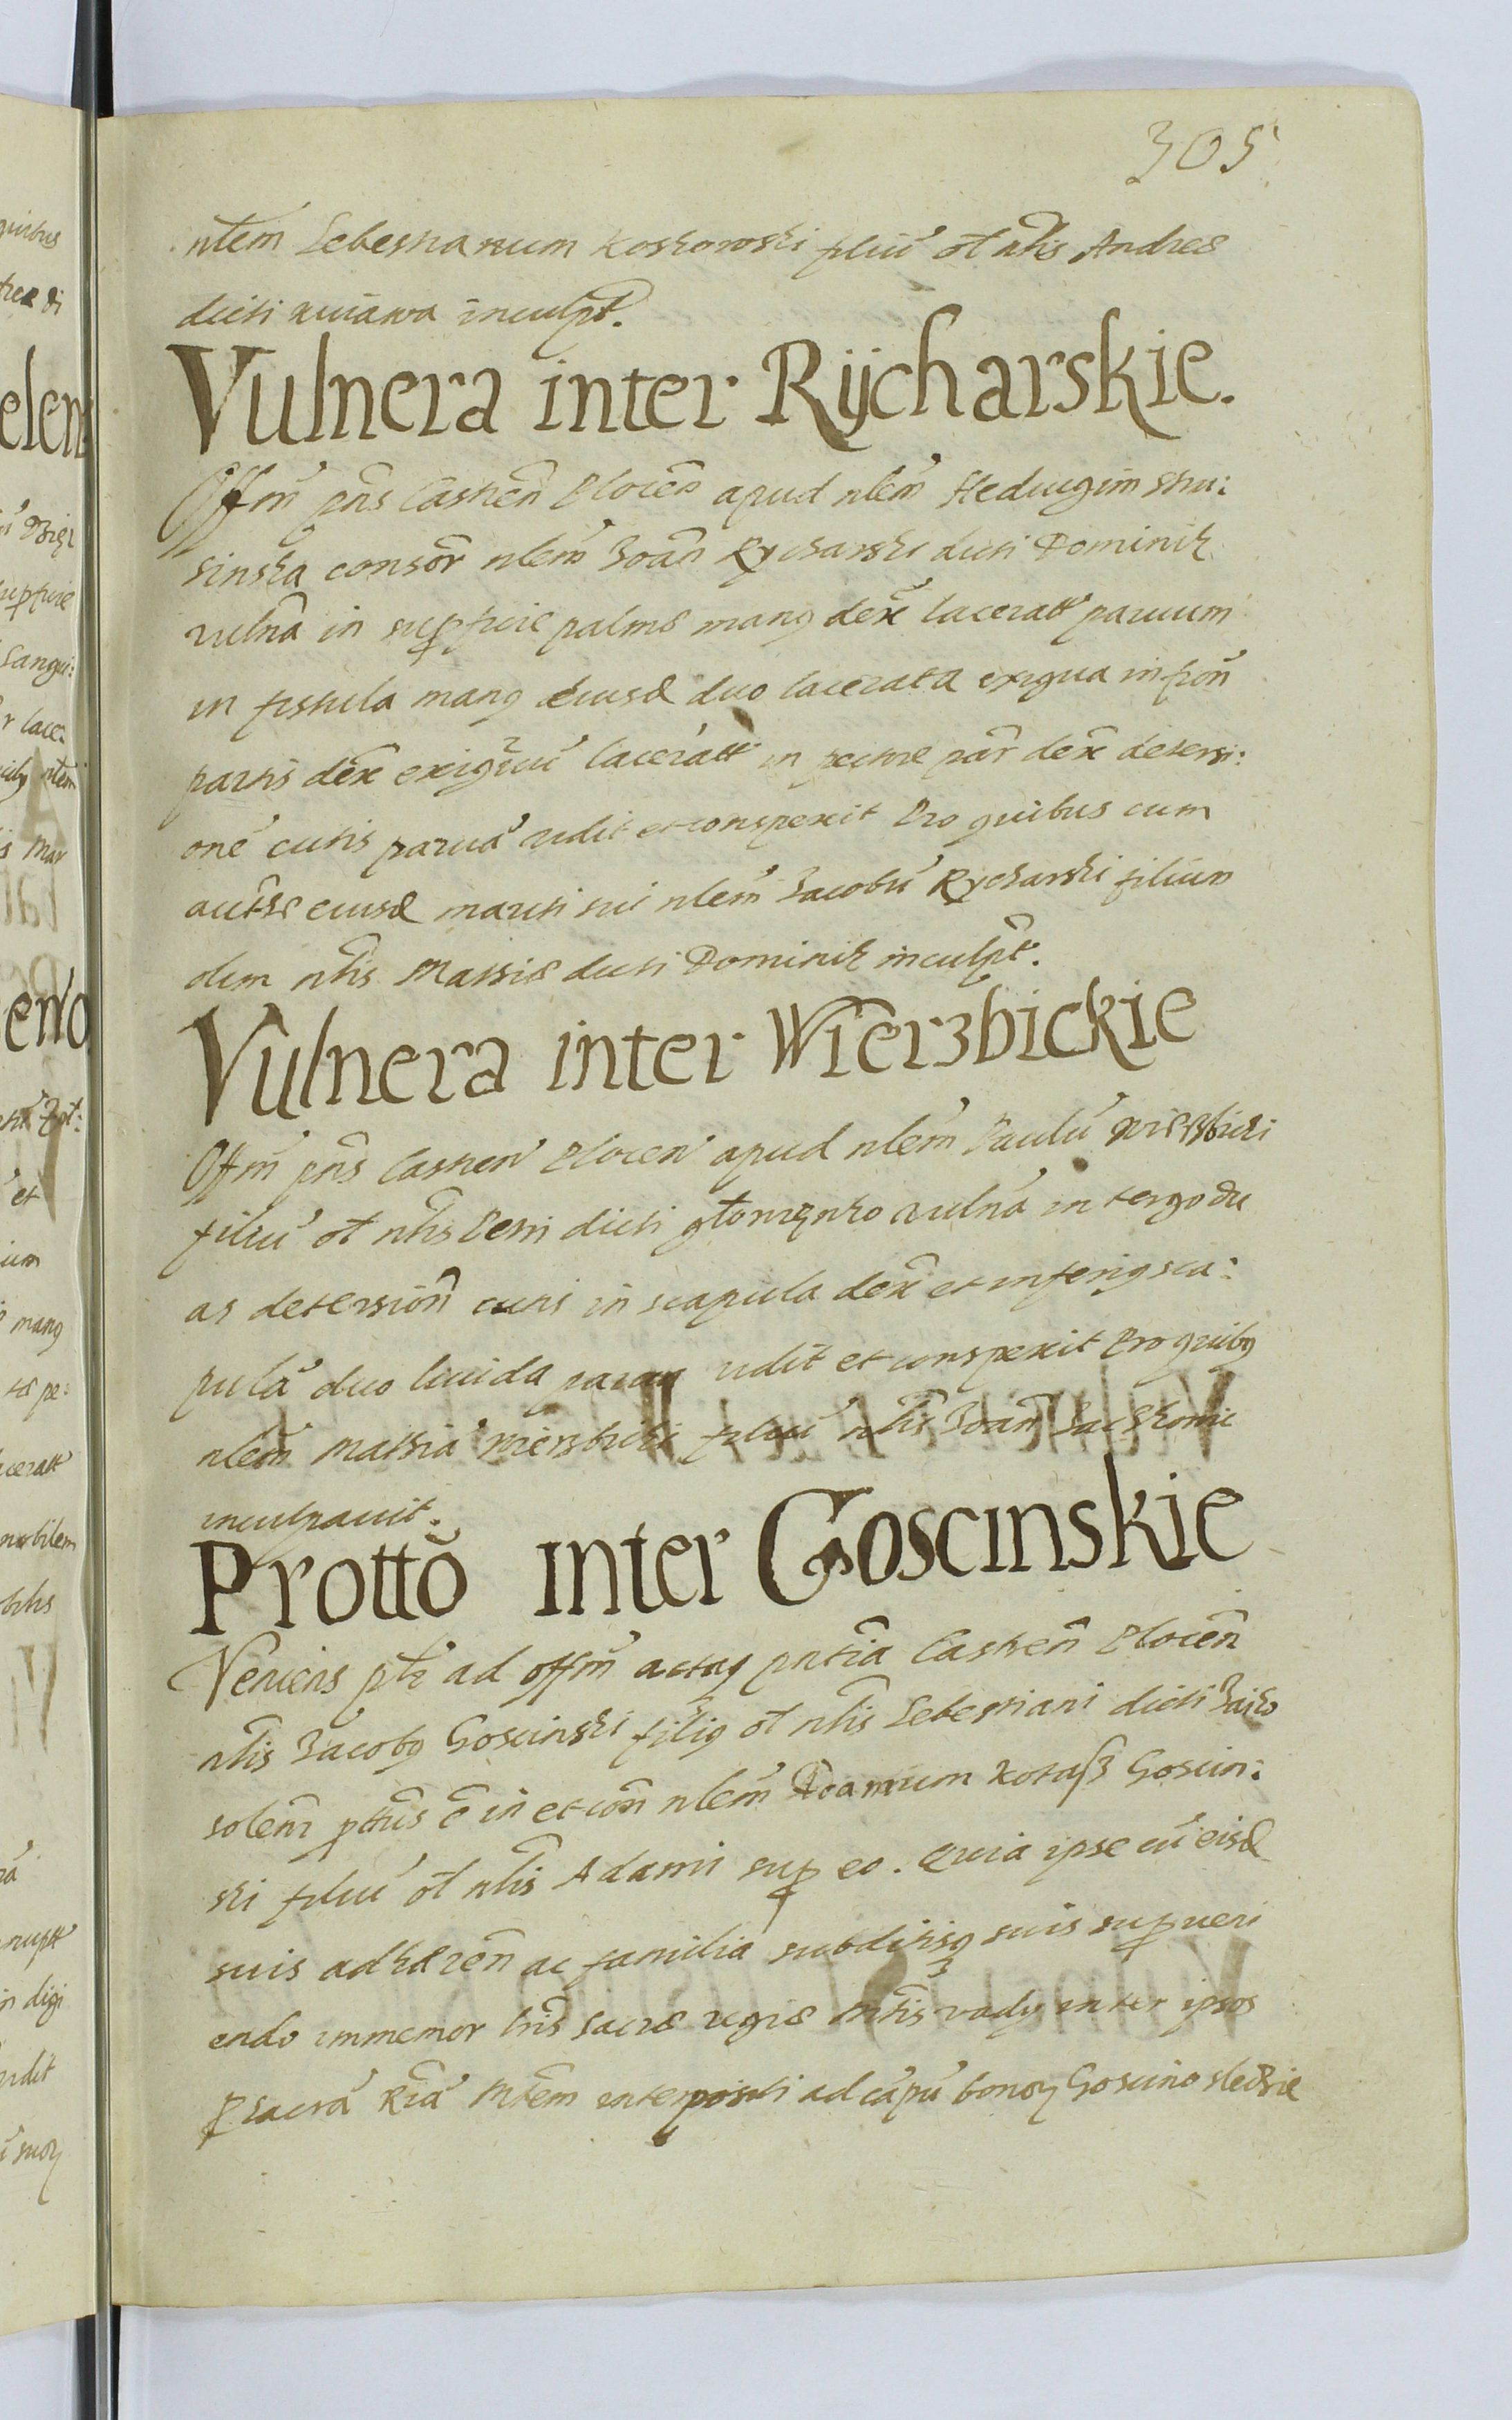 305
nlem Sebestianum Koskowski filiu ol nlis Andree
dicti kuiawa inculpt.
Vulnera inter Rÿcharskie.
Offm pns Castren Plocen apud nlem Heduigim Stru:
sinska consor nlem Joan Rycharski dicti Dominik
vulna in supficie palme manq dex laceratt paruum
in fistula manq eiusd duo lacerata exigua in fron
partis dex exiguu laceratt in pectore par dex detersi:
one cutis parua vidit et conspexit Pro quibus cum
autthe eiusd mariti sui nlem Jacobu Rycharski filium
olim nlis Mathie dicti Dominik inculpt.
Vulnera inter Wierzbickie
Offm pns Castren Plocen apud nlem Paulu Wierzbicki
filiu ol nlis Petri dicti vulna in tergo du
as detersion cutis in scapula dex et inferiq sca:
pula duo liuida vidit et conspexit Pro quibq
nlem Mathia Wierzbicki filiu nlis Joan
inculpauit.
Protto inter Goscinskie
Veniens ad offm actaq pntia Castren Plocen
nlis Jacobq Goscinski filiq ol nlis Sebestiani dicti
solenr pttus e in et con nlem Kotaß Goscin:
ski filiu ol nlis Adami sup eo. Quia ipse cu eisd
suis adhæren ac familia subditisq suis supueni
endo immemor lris Sacre regie Mttis vady inter ipsos
p sacra Ria Mtem interpositi ad capu bonor Goscino